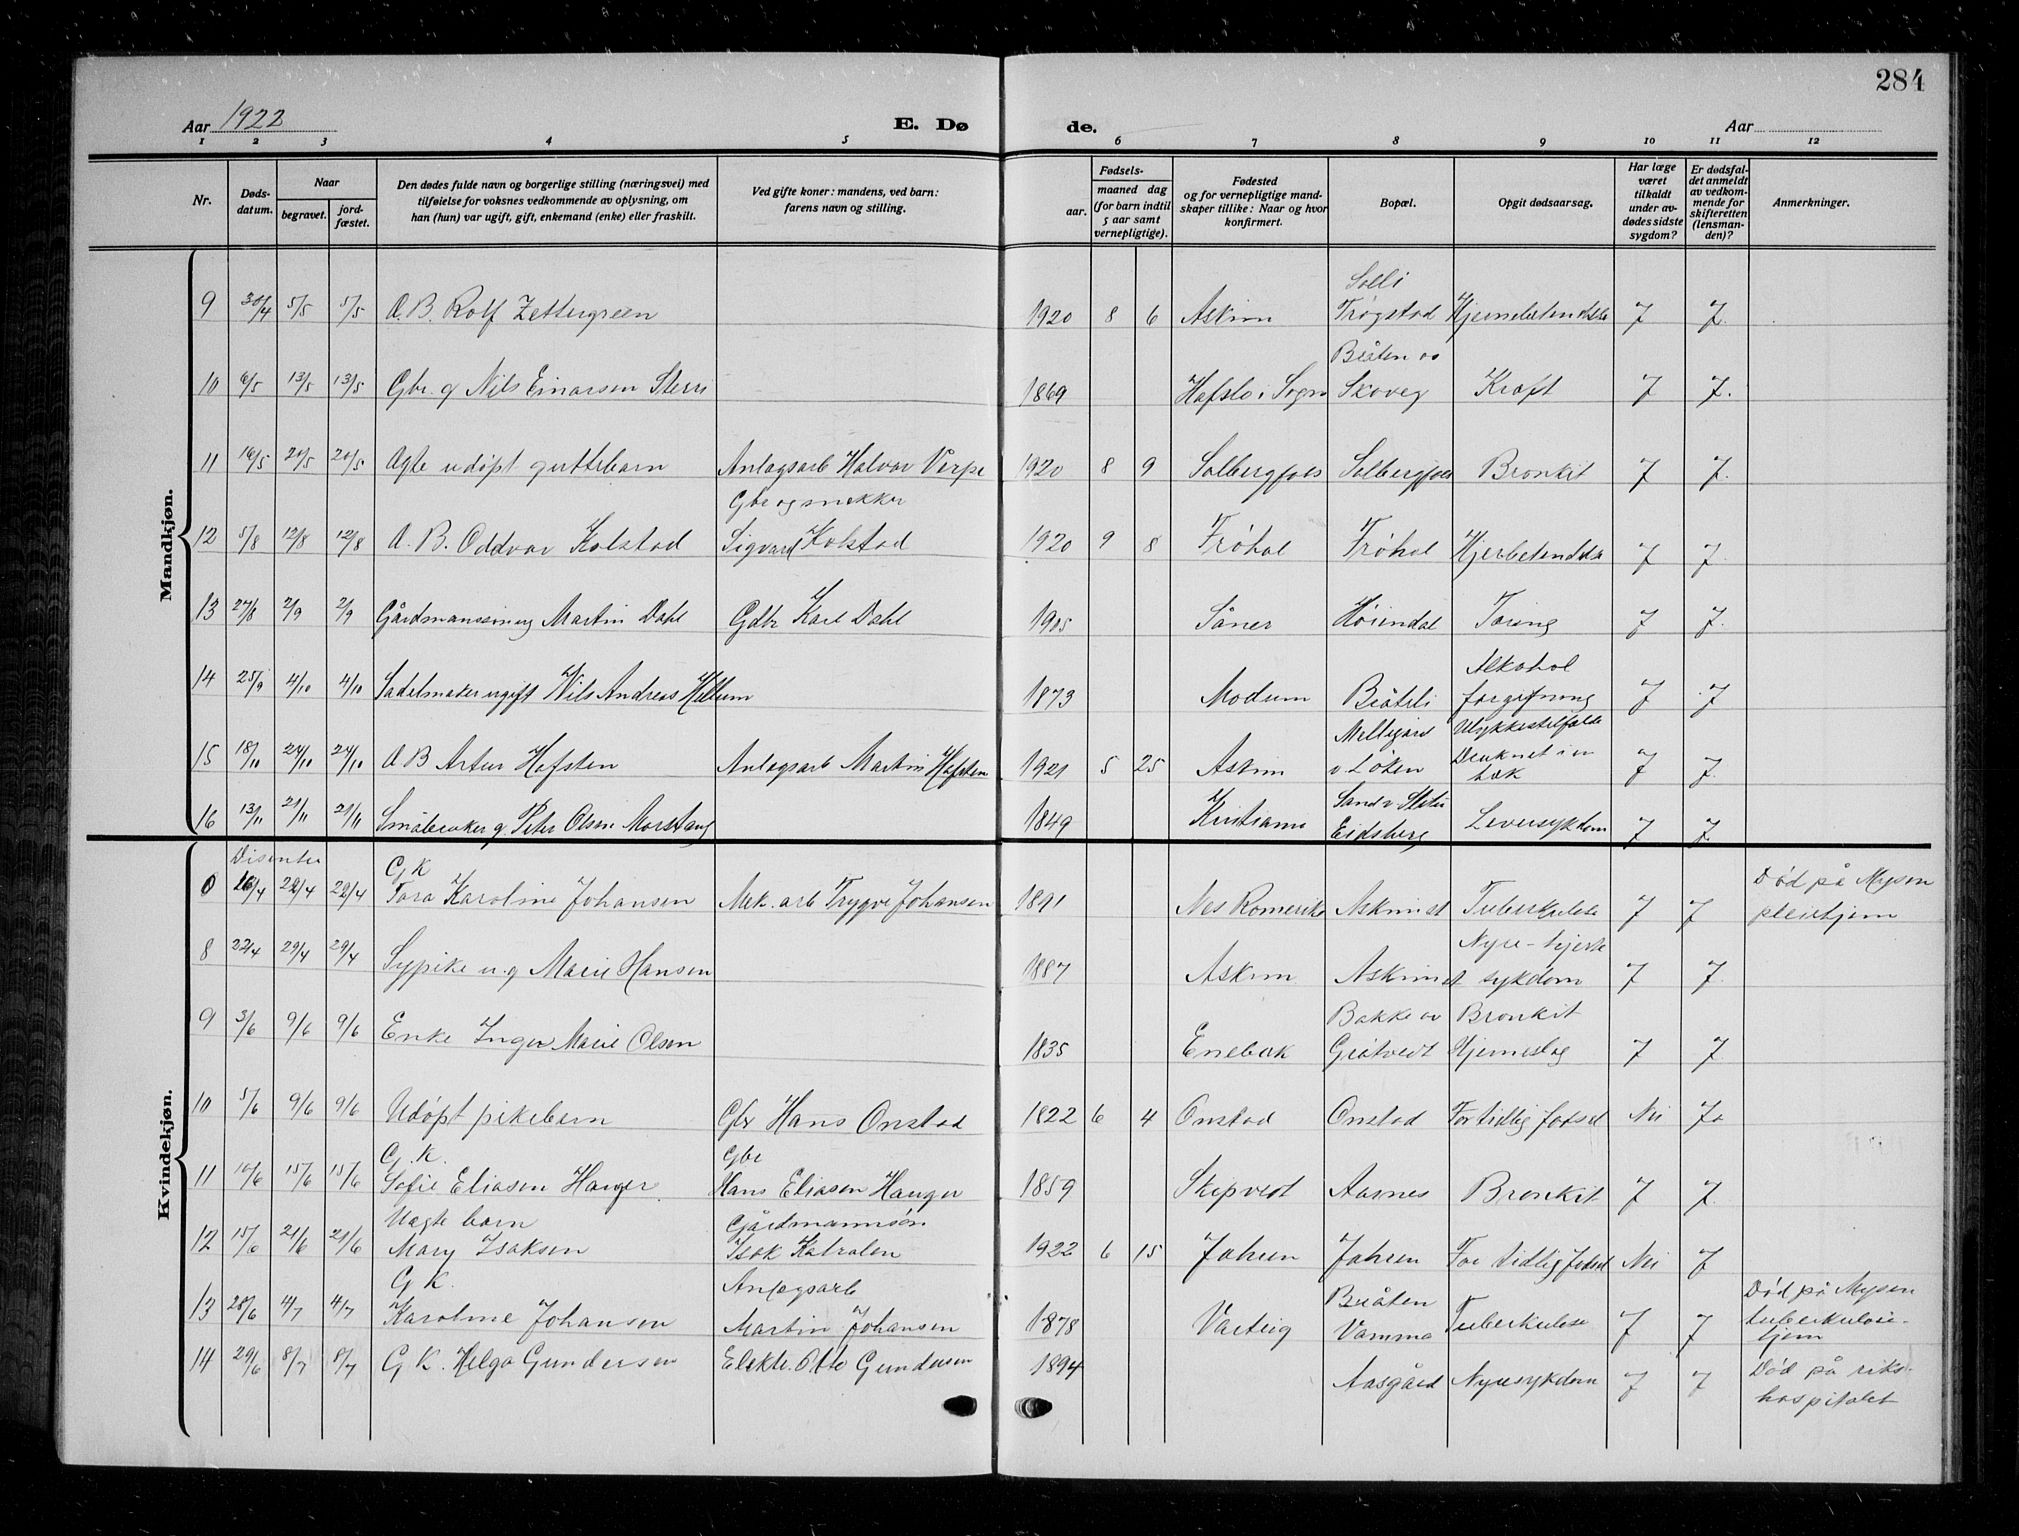 284
Aar 1922
E. Dø
de.
Aar
1 2 3 4 5 6 7 8 9 10 11 12
Nr.
Døds-
datum.
Naar
begravet.
jord-
fæstet.
Den dødes fulde navn og borgerlige stilling (næringsvei) med
tilføielse for voksnes vedkommende av oplysning, om
han (hun) var ugift, gift, enkemand (enke) eller fraskilt.
Ved gifte koner: mandens, ved barn:
farens navn og stilling.
Fødsels-
aar.
maaned dag
(for barn indtil
5 aar samt
vernepligtige).
Fødested
og for vernepligtige mand-
skaper tillike: Naar og hvor
konfirmert.
Bopæl.
Opgit dødsaarsag.
Har læge
været
tilkaldt
under av-
dødes sidste
sygdom?
Er dødsfal-
det anmeldt
av vedkom-
mende for
skifteretten
(lensman-
den)?
Anmerkninger.
Mandkjøn.
Solli
9 30/4 5/5 5/5 A.B. Rolf Zettergreen 1920 8 6 Askim Trøgstad Hjernebetendelse J J.
Bråten av
10 6/5 13/5 13/5 Gbr g Nils Einarsen Sterri 1869 Hafslo i Sogn Skoveg Kræft J J.
11 16/5 20/5 20/5 Ægte udøpt guttebarn Anlægsarb Halvor Verpe 1920 8 9 Solbergfoss Solbergfoss Bronkit J J.
Gbr og snekker
12 5/8 12/8 12/8 A.B. Oddvar Kolstad Sigvard Kolstad 1920 9 8 Frøhol Frøhol J J.
13 27/8 2/9 2/9 Gårdmanssøn ug Martin Dahl Gdbr Karl Dahl 1905 Såner Høiendal Tæring J J.
Alkohol
14 25/9 4/10 4/10 Sadelmaker ugift Nils Andreas Hellum 1873 Modum Bråteli forgiftning J J
Melligård Ulykkestilfælde
15 18/10 24/10 24/10 A B Artur Hafsten Anlægsarb Martin Hafsten 1921 5 25 Askim v Løken Druknet i en
bæk J J.
Sand v Slitu
16 13/11 21/11 21/11 Småbruker g. Peter Olsen Morstang 1849 Kristiania Eidsberg Leversykdom J J.
Kvindekjøn.
Disenter
G K Død på Mysen
0 16/4 22/4 22/4 Tora Karoline Johansen Mek. arb Trygve Johansen 1891 Nes Romerike Askim st Tuberkulose J J pleiehjem
Nyre-hjerte
8 22/4 29/4 29/4 Sypike u.g Marie Hansen 1887 Askim Askim st sykdom J J.
Bakke av Bronkit
9 3/6 9/6 9/6 Enke Inger Marie Olsen 1835 Enebak Grøtvedt Hjerneslag J J.
10 5/6 9/6 9/6 Udøpt pikebarn Gbr Hans Onstad 1822 6 4 Onstad Onstad For tidlig fødsel Nei Ja
G.K. Gbr
11 10/6 15/6 15/6 Sofie Eliasen Hanger Hans Eliasen Hanger 1859 Skipvedt Aarnes Bronkit J J.
Uægte barn Gårdmannsøn
12 15/6 21/6 21/6 Mary Isaksen Isak 1922 6 15 Jahren Jahren For tidlig fødsel Nei J
G K. Anlægsarb Bråten Død på Mysen
13 28/6 4/7 4/7 Karoline Johansen Martin Johansen 1878 Varteig Vamma Tuberkulose J J tuberkulose-
hjem
14 29/6 8/7 8/7 G K. Helga Gundersen Elektr. Otto Gundersen 1894 Aasgård Nyresykdom J J Død på riks-
hospitalet